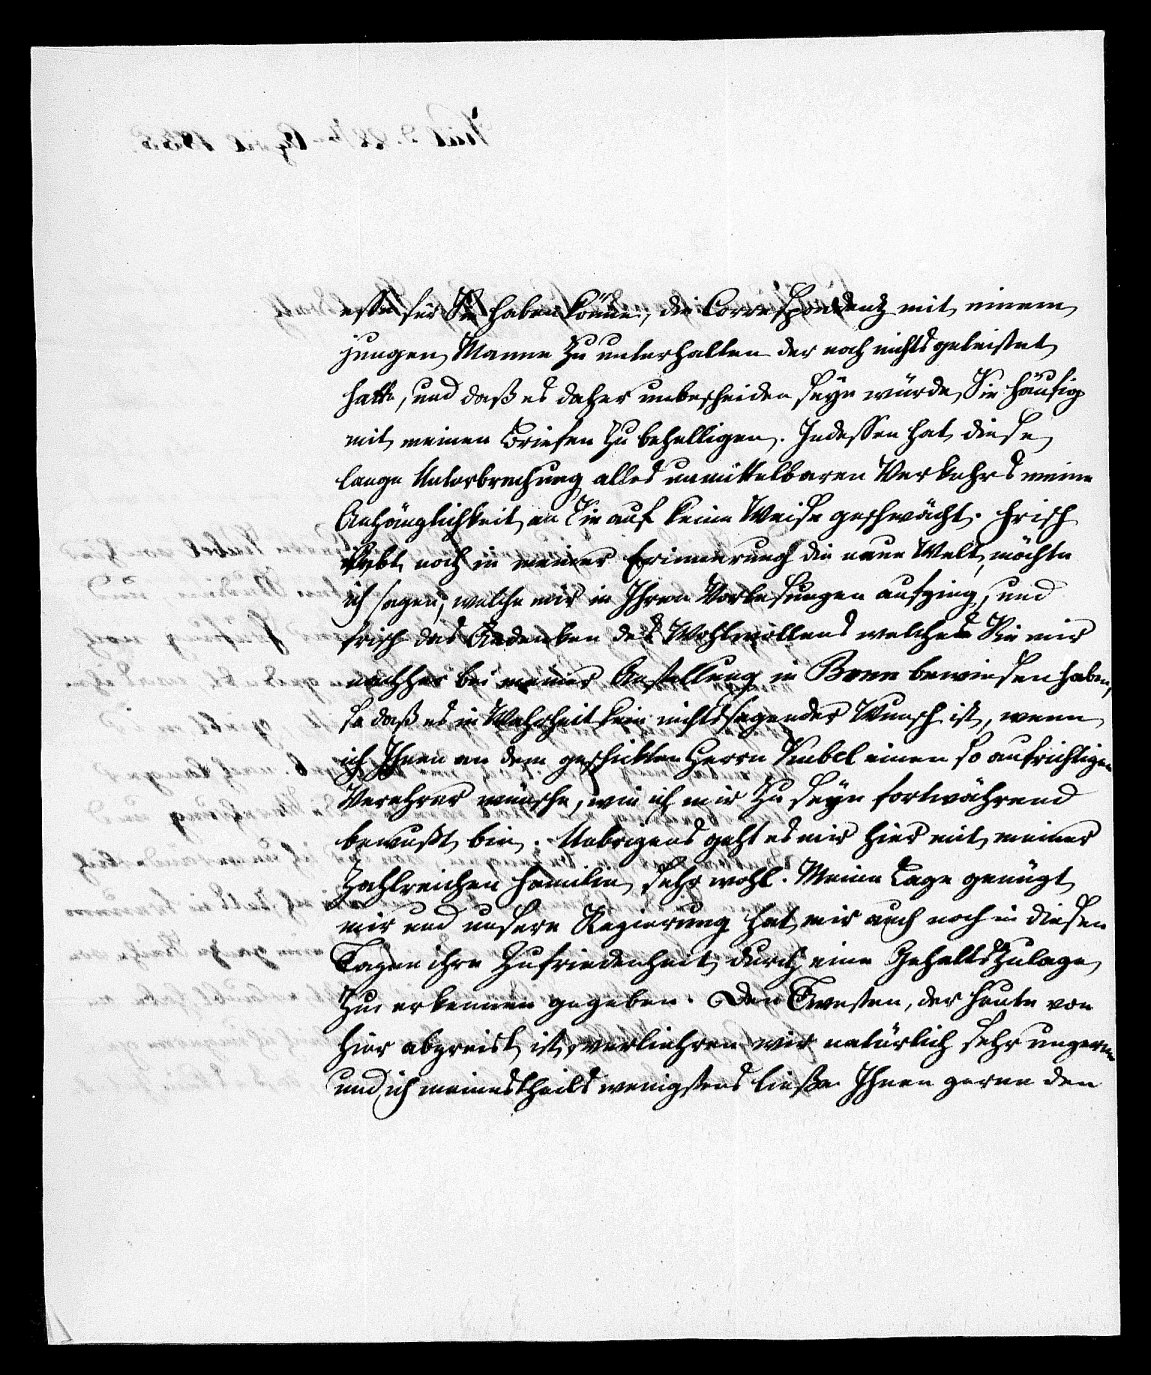 esse für Sie haben könne, die Correspondenz mit einem
jungen Manne zu unterhalten der noch nichts geleistet
hatte, und daß es daher unbescheiden seyn würde, Sie häufig
mit meinen Briefen zu behelligen. Indessen hat diese
lange Unterbrechung alles unmittelbaren Verkehrs meine
Anhänglichkeit an Sie auf keine Weise geschwächt. Frisch
lebt noch in meiner Erinnerung die neue Welt, möchte
ich sagen, welche mir in Ihren Vorlesungen aufging, und
frisch das Andenken des Wohlwollens welches Sie mir
nachher bei meiner Anstellung in Bonn bewiesen haben,
so daß es in Wahrheit kein nichtssagender Wunsch ist, wenn
ich Ihnen an dem geschickten Herrn einen so aufrichtigen
Verehrer wünsche, wie ich mir zu seyn fortwährend
bewußt bin. Uebrigens geht es mir hier mit meiner
zahlreichen Familie sehr wohl. Meine Lage genügt
mir und unsere Regierung hat mir auch noch in diesen
Tagen ihre Zufriedenheit durch eine Gehaltszulage
zu erkennen gegeben. Den Twesten, der heute von
hier abgereist ist, verliehren wir natürlich sehr ungerne
und ich meinestheils wenigstens ließe Ihnen gerne den